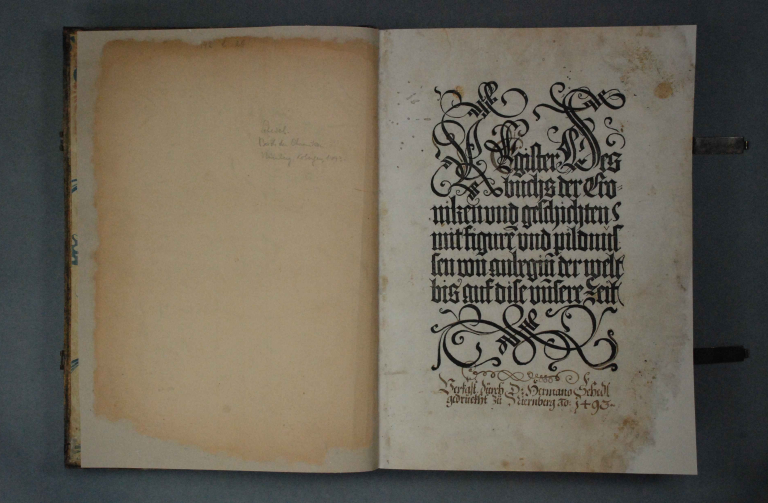 REgister Des
buchs der Cro-
niken und geschichten
mit figurē und pildnus
sen von anbegiñ der welt
bis auf dise uñsere Zeit
Verfast durch D: Hermano Schedl
gedruckht zu Nürnberg aō: 1493-